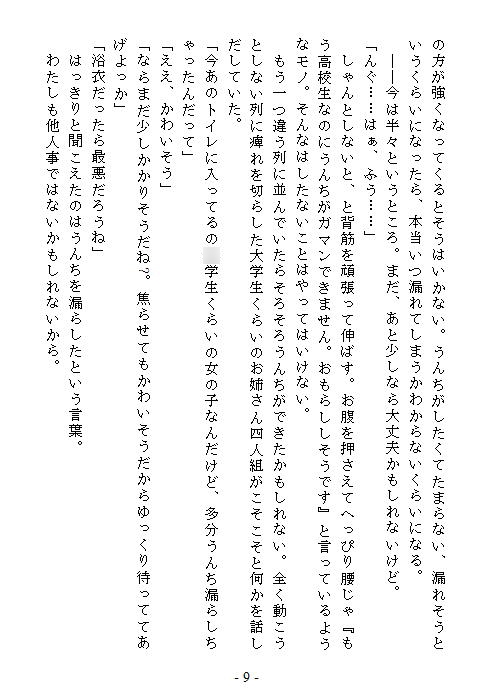 の方が強くなってくるとそうはいかない。うんちがしたくてたまらない、漏れそうと
いうくらいになったら、本当いつ漏れてしまうかわからないくらいになる。
――今は半々というところ。まだ、あと少しなら大丈夫かもしれないけど。
「んぐ……はぁ、ふう……」
しゃんとしないと、と背筋を頑張って伸ばす。お腹を押さえてへっぴり腰じゃ『も
う高校生なのにうんちがガマンできません。おもらししそうです』と言っているよう
なモノ。そんなはしたないことはやってはいけない。
もう一つ違う列に並んでいたらそろそろうんちができたかもしれない。全く動こう
としない列に痺れを切らした大学生くらいのお姉さん四人組がこそこそと何かを話し
だしていた。
「今あのトイレに入ってるの 学生くらいの女の子なんだけど、多分うんち漏らしち
ゃったんだって」
「ええ、かわいそう」
「ならまだ少しかかりそうだね？。焦らせてもかわいそうだからゆっくり待っててあ
げよっか」
「浴衣だったら最悪だろうね」
はっきりと聞こえたのはうんちを漏らしたという言葉。
わたしも他人事ではないかもしれないから。
- 9 -